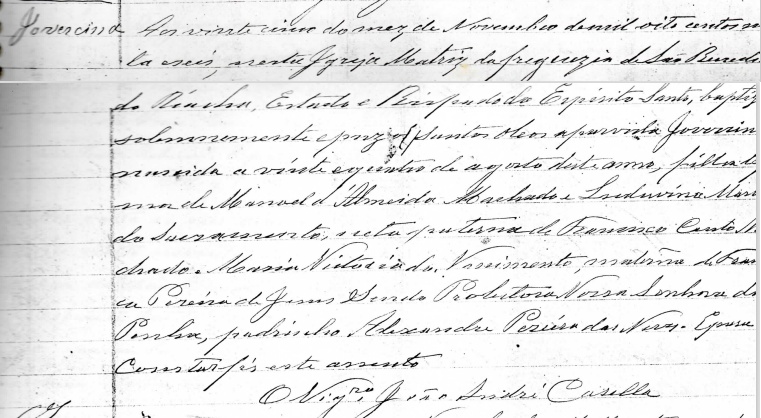 Jovercina Aos vinte cinco do mez de Novembro de mil oito centos n
ta e seis, nesta Igreja Matriz da freguezia de São Bened
do Riacho, Estado e Bispado do Espirito Santo, baptiz
solemnemente e puz os Santos Oleos a parvula Jovercin
nascida a vinte e quatro de agosto deste anno, filha le
ma de Manoel d'Almeida Machado e Luduvina Mari
do Sacramento, neta paterna de Francisco Couto M
chado e Maria Victoria do, materna de Fran
ca Pereira de Jesus Sendo Protectora Nossa Senhora da
Penha, padrinho Alexandre Pereira das Neves. E para
Constar fiz este assento
O Vigrº João André Casella